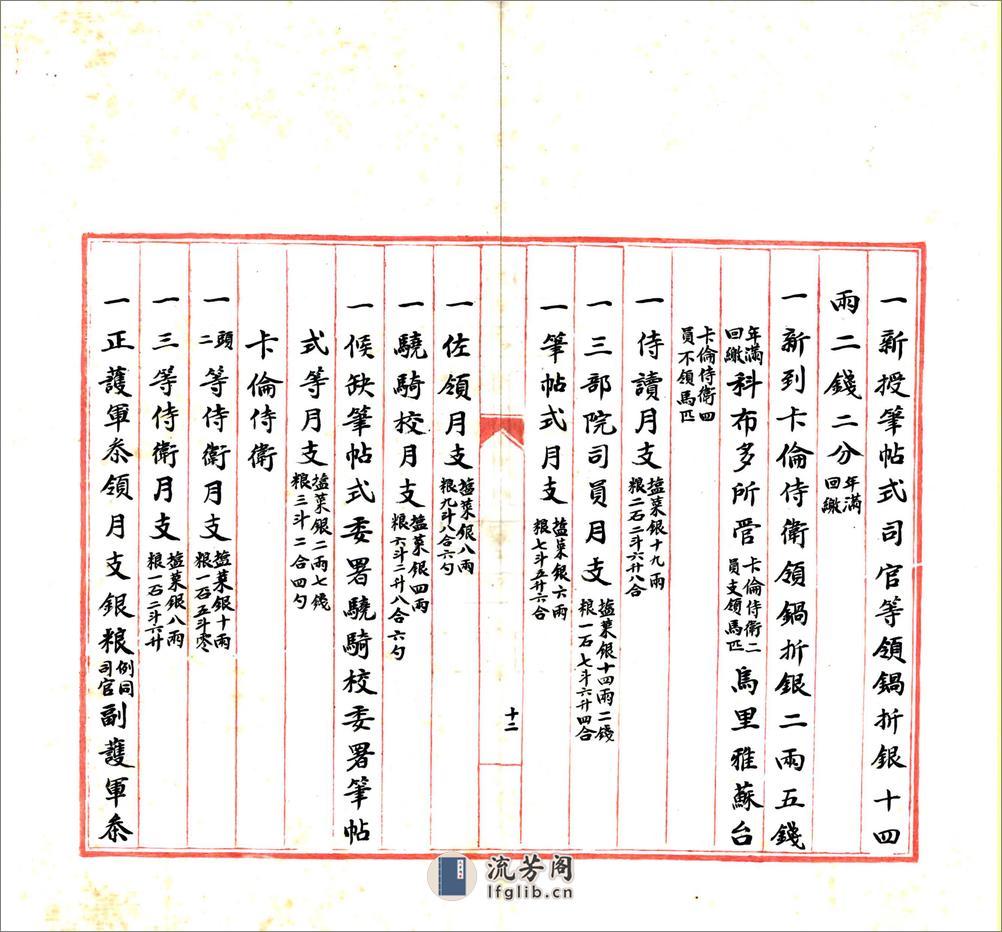 一新授筆帖式司官等領鍋折銀十四
兩二錢二分年滿回繳
一新到卡倫侍衛領鍋折銀二兩五錢
年滿回繳科布多所管卡倫侍衛二員支領馬匹烏里雅蘇台
卡倫侍衛四員不領馬匹
一侍讀月支鹽菜銀十九兩粮二石二斗六升八合
一三部院司員月支鹽菜銀十四兩二錢粮一石七斗六升四合
一筆帖式月支鹽菜銀六兩粮七斗五升六合
十二
一佐領月支鹽菜銀八兩粮九斗八合六勺
一驍騎校月支鹽菜銀四兩粮六斗二升八合六勺
一候缺筆帖式委署驍騎校委署筆帖
式等月支鹽菜銀二兩七錢粮三斗二合四勺
卡倫侍衛
一頭二等侍衛月支鹽菜銀十兩粮一石五斗零
一三等侍衛月支鹽菜銀八兩粮一石二斗六升
一正護軍叅領月支銀粮例同司官副護軍叅
流芳阁
lfglib.cn